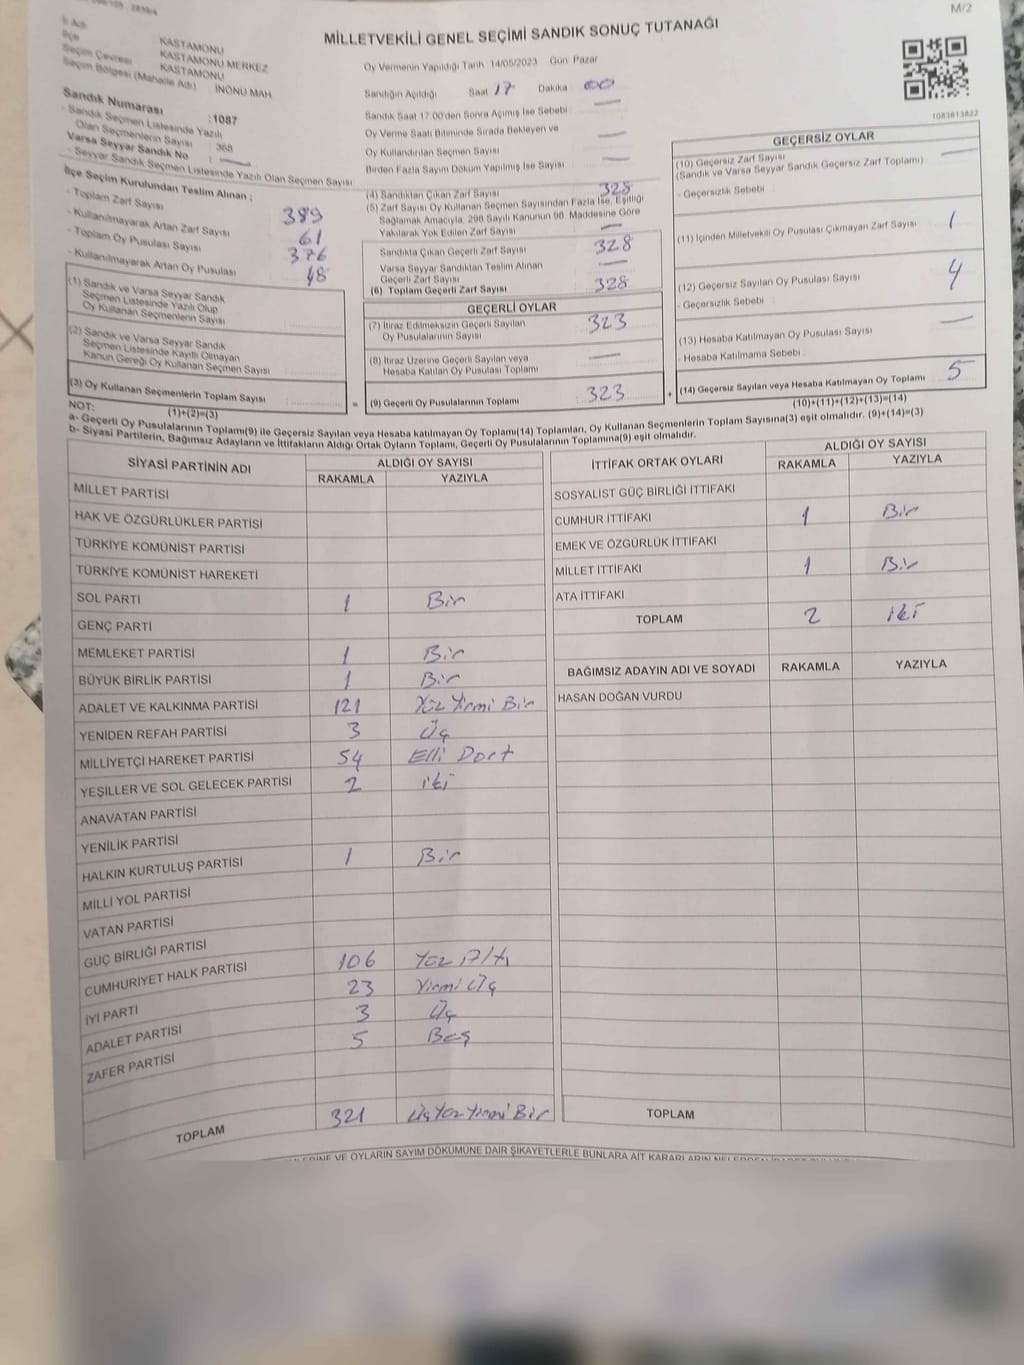 M/2
MİLLETVEKİLİ GENEL SEÇİMİ SANDIK SONUÇ TUTANAĞI
İl Adı
İlçe
Seçim Çevresi
Seçim Bölgesi (Mahalle Adı)
KASTAMONU
KASTAMONU MERKEZ
KASTAMONU
İNÖNÜ MAH
Sandık Numarası :1087
- Sandık Seçmen Listesinde Yazılı
Olan Seçmenlerin Sayısı : 368
Varsa Seyyar Sandık No : —
- Seyyar Sandık Seçmen Listesinde Yazılı Olan Seçmen Sayısı
İlçe Seçim Kurulundan Teslim Alınan ;
- Toplam Zarf Sayısı 389
- Kullanılmayarak Artan Zarf Sayısı 61
- Toplam Oy Pusulası Sayısı 376
- Kullanılmayarak Artan Oy Pusulası 48
(1) Sandık ve Varsa Seyyar Sandık
Seçmen Listesinde Yazılı Olup
Oy Kullanan Seçmenlerin Sayısı
(2) Sandık ve Varsa Seyyar Sandık
Seçmen Listesinde Kayıtlı Olmayan
Kanun Gereği Oy Kullanan Seçmen Sayısı
(3) Oy Kullanan Seçmenlerin Toplam Sayısı
(1)+(2)=(3)
Oy Vermenin Yapıldığı Tarih 14/05/2023 Gün Pazar
Sandığın Açıldığı Saat 17 Dakika 00
Sandık Saat 17.00'den Sonra Açılmış İse Sebebi —
Oy Verme Saati Bitiminde Sırada Bekleyen ve
Oy Kullandırılan Seçmen Sayısı —
Birden Fazla Sayım Döküm Yapılmış İse Sayısı —
(4) Sandıktan Çıkan Zarf Sayısı 328
(5) Zarf Sayısı Oy Kullanan Seçmen Sayısından Fazla İse, Eşitliği
Sağlamak Amacıyla, 298 Sayılı Kanunun 98. Maddesine Göre
Yakılarak Yok Edilen Zarf Sayısı —
Sandıkta Çıkan Geçerli Zarf Sayısı 328
Varsa Seyyar Sandıktan Teslim Alınan
Geçerli Zarf Sayısı —
(6) Toplam Geçerli Zarf Sayısı 328
GEÇERLİ OYLAR
(7) İtiraz Edilmeksizin Geçerli Sayılan
Oy Pusulalarının Sayısı 323
(8) İtiraz Üzerine Geçerli Sayılan veya
Hesaba Katılan Oy Pusulası Toplamı —
= (9) Geçerli Oy Pusulalarının Toplamı 323 +
1083813822
GEÇERSİZ OYLAR
(10) Geçersiz Zarf Sayısı —
(Sandık ve Varsa Seyyar Sandık Geçersiz Zarf Toplamı)
- Geçersizlik Sebebi
(11) İçinden Milletvekili Oy Pusulası Çıkmayan Zarf Sayısı 1
(12) Geçersiz Sayılan Oy Pusulası Sayısı 4
- Geçersizlik Sebebi :
(13) Hesaba Katılmayan Oy Pusulası Sayısı —
- Hesaba Katılmama Sebebi :
(14) Geçersiz Sayılan veya Hesaba Katılmayan Oy Toplamı 5
(10)+(11)+(12)+(13)=(14)
NOT:
a- Geçerli Oy Pusulalarının Toplamı(9) ile Geçersiz Sayılan veya Hesaba Katılmayan Oy Toplamı(14) Toplamları, Oy Kullanan Seçmenlerin Toplam Sayısına(3) eşit olmalıdır. (9)+(14)=(3)
b- Siyasi Partilerin, Bağımsız Adayların ve İttifakların Aldığı Ortak Oyların Toplamı, Geçerli Oy Pusulalarının Toplamına(9) eşit olmalıdır.
SİYASİ PARTİNİN ADI ALDIĞI OY SAYISI
RAKAMLA YAZIYLA
MİLLET PARTİSİ
HAK VE ÖZGÜRLÜKLER PARTİSİ
TÜRKİYE KOMÜNİST PARTİSİ
TÜRKİYE KOMÜNİST HAREKETİ
SOL PARTİ 1 Bir
GENÇ PARTİ
MEMLEKET PARTİSİ 1 Bir
BÜYÜK BİRLİK PARTİSİ 1 Bir
ADALET VE KALKINMA PARTİSİ 121 Yüz Yirmi Bir
YENİDEN REFAH PARTİSİ 3 Üç
MİLLİYETÇİ HAREKET PARTİSİ 54 Elli Dört
YEŞİLLER VE SOL GELECEK PARTİSİ 2 iki
ANAVATAN PARTİSİ
YENİLİK PARTİSİ
HALKIN KURTULUŞ PARTİSİ 1 Bir
MİLLİ YOL PARTİSİ
VATAN PARTİSİ
GÜÇ BİRLİĞİ PARTİSİ
CUMHURİYET HALK PARTİSİ 106 Yüz Altı
İYİ PARTİ 23 Yirmi Üç
ADALET PARTİSİ 3 Üç
ZAFER PARTİSİ 5 Beş
TOPLAM 321 Üç Yüz Yirmi Bir
İTTİFAK ORTAK OYLARI ALDIĞI OY SAYISI
RAKAMLA YAZIYLA
SOSYALİST GÜÇ BİRLİĞİ İTTİFAKI
CUMHUR İTTİFAKI 1 Bir
EMEK VE ÖZGÜRLÜK İTTİFAKI
MİLLET İTTİFAKI 1 Bir
ATA İTTİFAKI
TOPLAM 2 iki
BAĞIMSIZ ADAYIN ADI VE SOYADI RAKAMLA YAZIYLA
HASAN DOĞAN VURDU
TOPLAM
VE OYLARIN SAYIM DÖKÜMÜNE DAİR ŞİKAYETLERLE BUNLARA AİT KARARLARIN